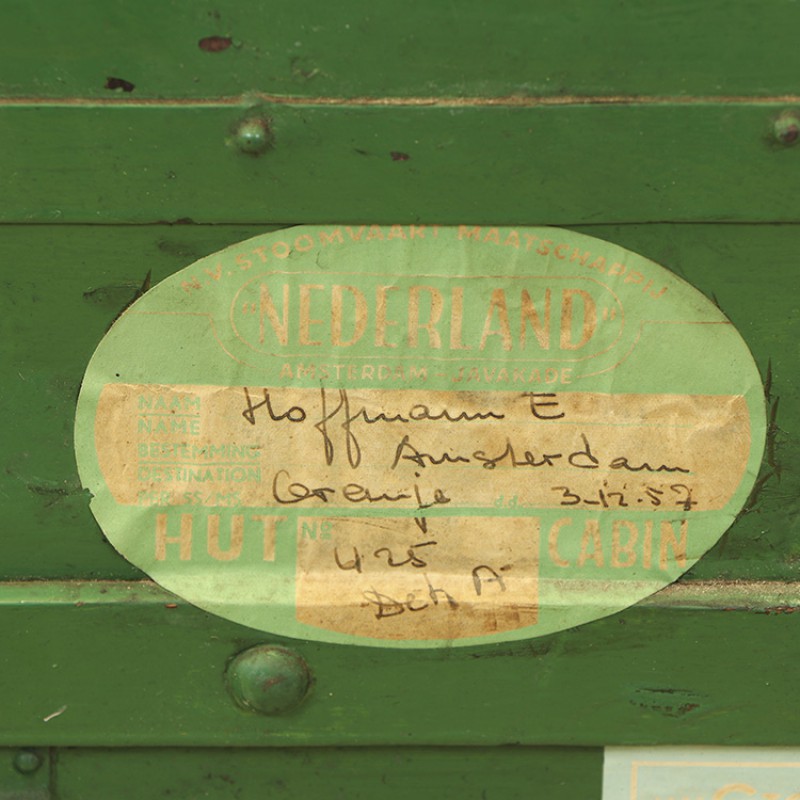 N.V. STOOMVAART MAATSCHAPPIJ
"NEDERLAND"
AMSTERDAM - JAVAKADE
NAAM Hoffmann E
NAME
BESTEMMING Amsterdam
DESTINATION
SS/MS Oranje d.d. 3-12-57
HUT No 425 CABIN
Dek A